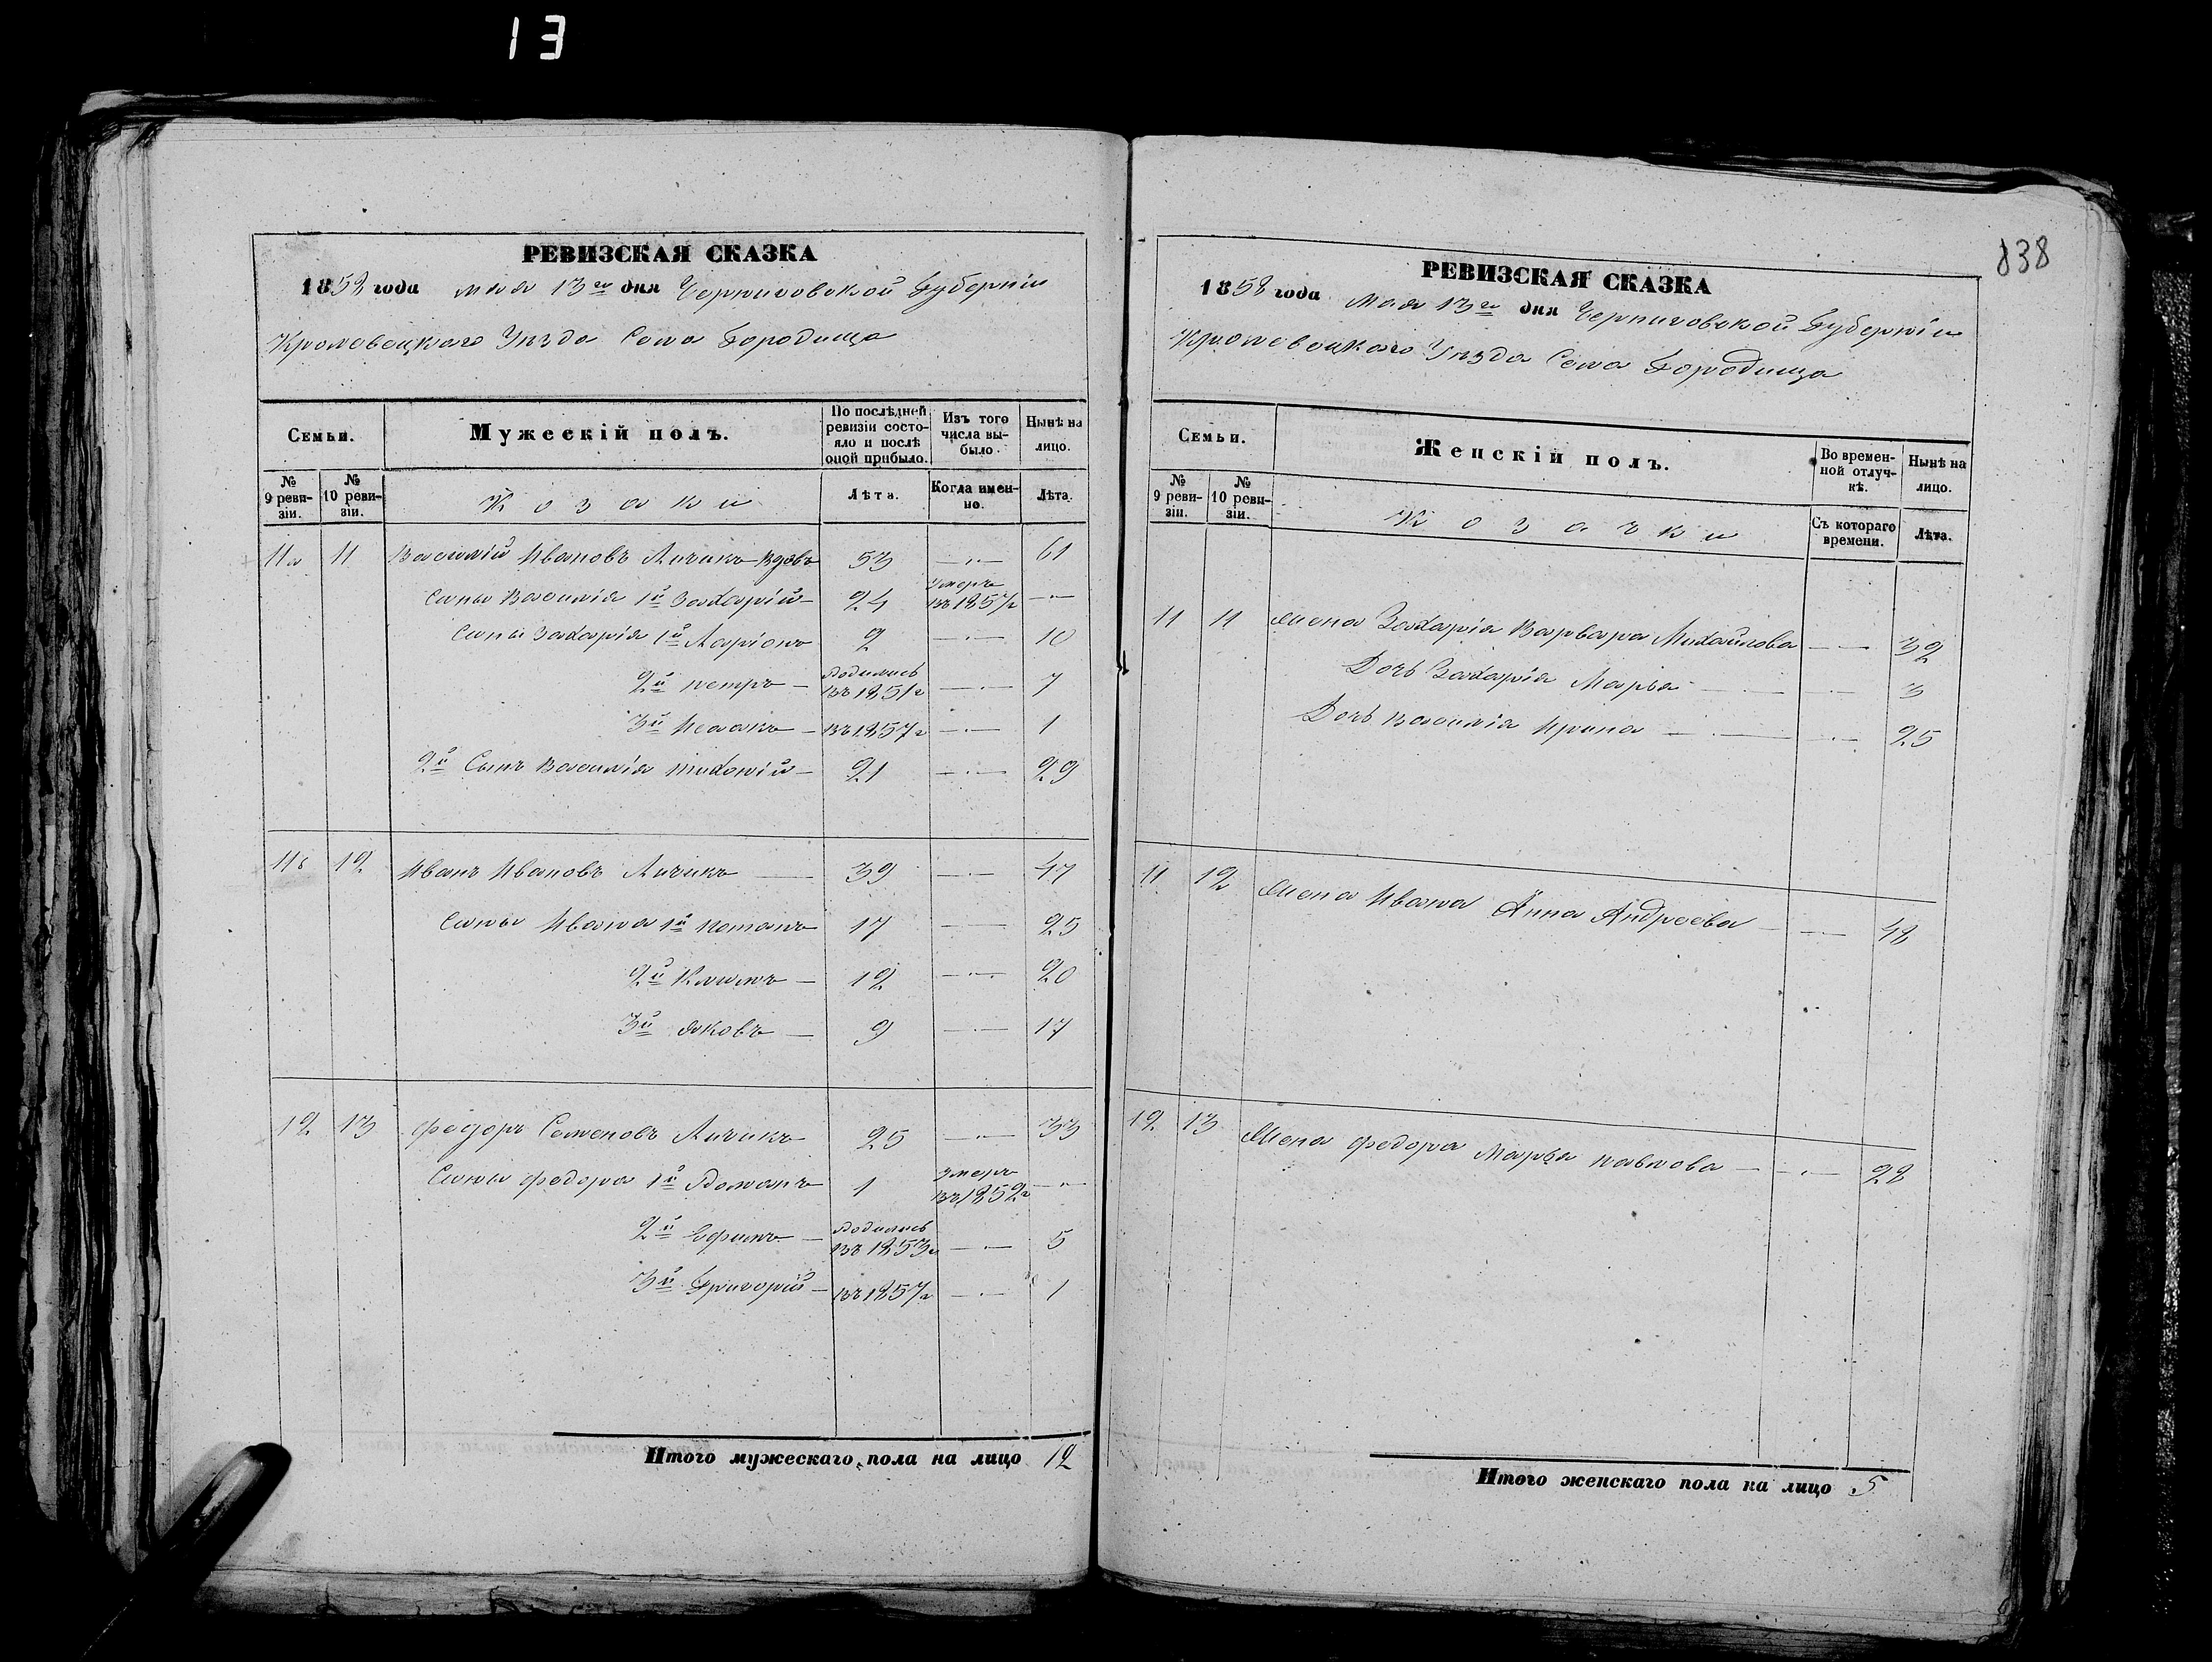 13
838
РЕВИЗСКАЯ СКАЗКА
1858 года мая 13го дня Черниговской Губерніи
Кролевецкаго Уѣзда Села Городища
Семьи.
Мужескій полъ.
По послѣдней ревизіи состояло и послѣ оной прибыло.
Изъ того числа выбыло.
Нынѣ на лицо.
№ 9 ревизіи.
№ 10 ревизіи.
Козаки
Лѣта.
Когда именно.
Лѣта.
11а 11 Василий Ивановъ Личикъ Вдовъ 53 — 61
Сыны Василія 1й Захарій 24 Умеръ въ 1857г —
Сыны Захарія 1й Ларіонъ 2 — 10
2й Петръ — Родились въ 1851г — 7
3й Исаакъ — въ 1857г — 1
2й Сынъ Василія Тихоній — 21 — 29
11б 12 Иванъ Ивановъ Личикъ — 39 — 47
Сыны Ивана 1й Потапъ 17 — 25
2й Климъ — 12 — 20
3й Яковъ — 9 — 17
12 13 Федоръ Семеновъ Личикъ 25 — 33
Сыны Федора 1й Романъ 1 Умеръ въ 1852г —
2й Ефимъ — Родились въ 1853г — 5
3й Григорій — въ 1857г — 1
Итого мужескаго пола на лицо 12
РЕВИЗСКАЯ СКАЗКА
1858 года Мая 13го дня Черниговской Губерніи
Кролевецкаго Уѣзда Села Городища
Семьи.
Женскій полъ.
Во временной отлучкѣ.
Нынѣ на лицо.
№ 9 ревизіи.
№ 10 ревизіи.
Козачки
Съ котораго времени.
Лѣта.
11 11 Жена Захарія Варвара Михайлова — 32
Дочь Захарія Марья — 3
Дочь Василія Ирина — 25
11 12 Жена Ивана Анна Андреева — 48
12 13 Жена Федора Марья Павлова — 28
Итого женскаго пола на лицо 5